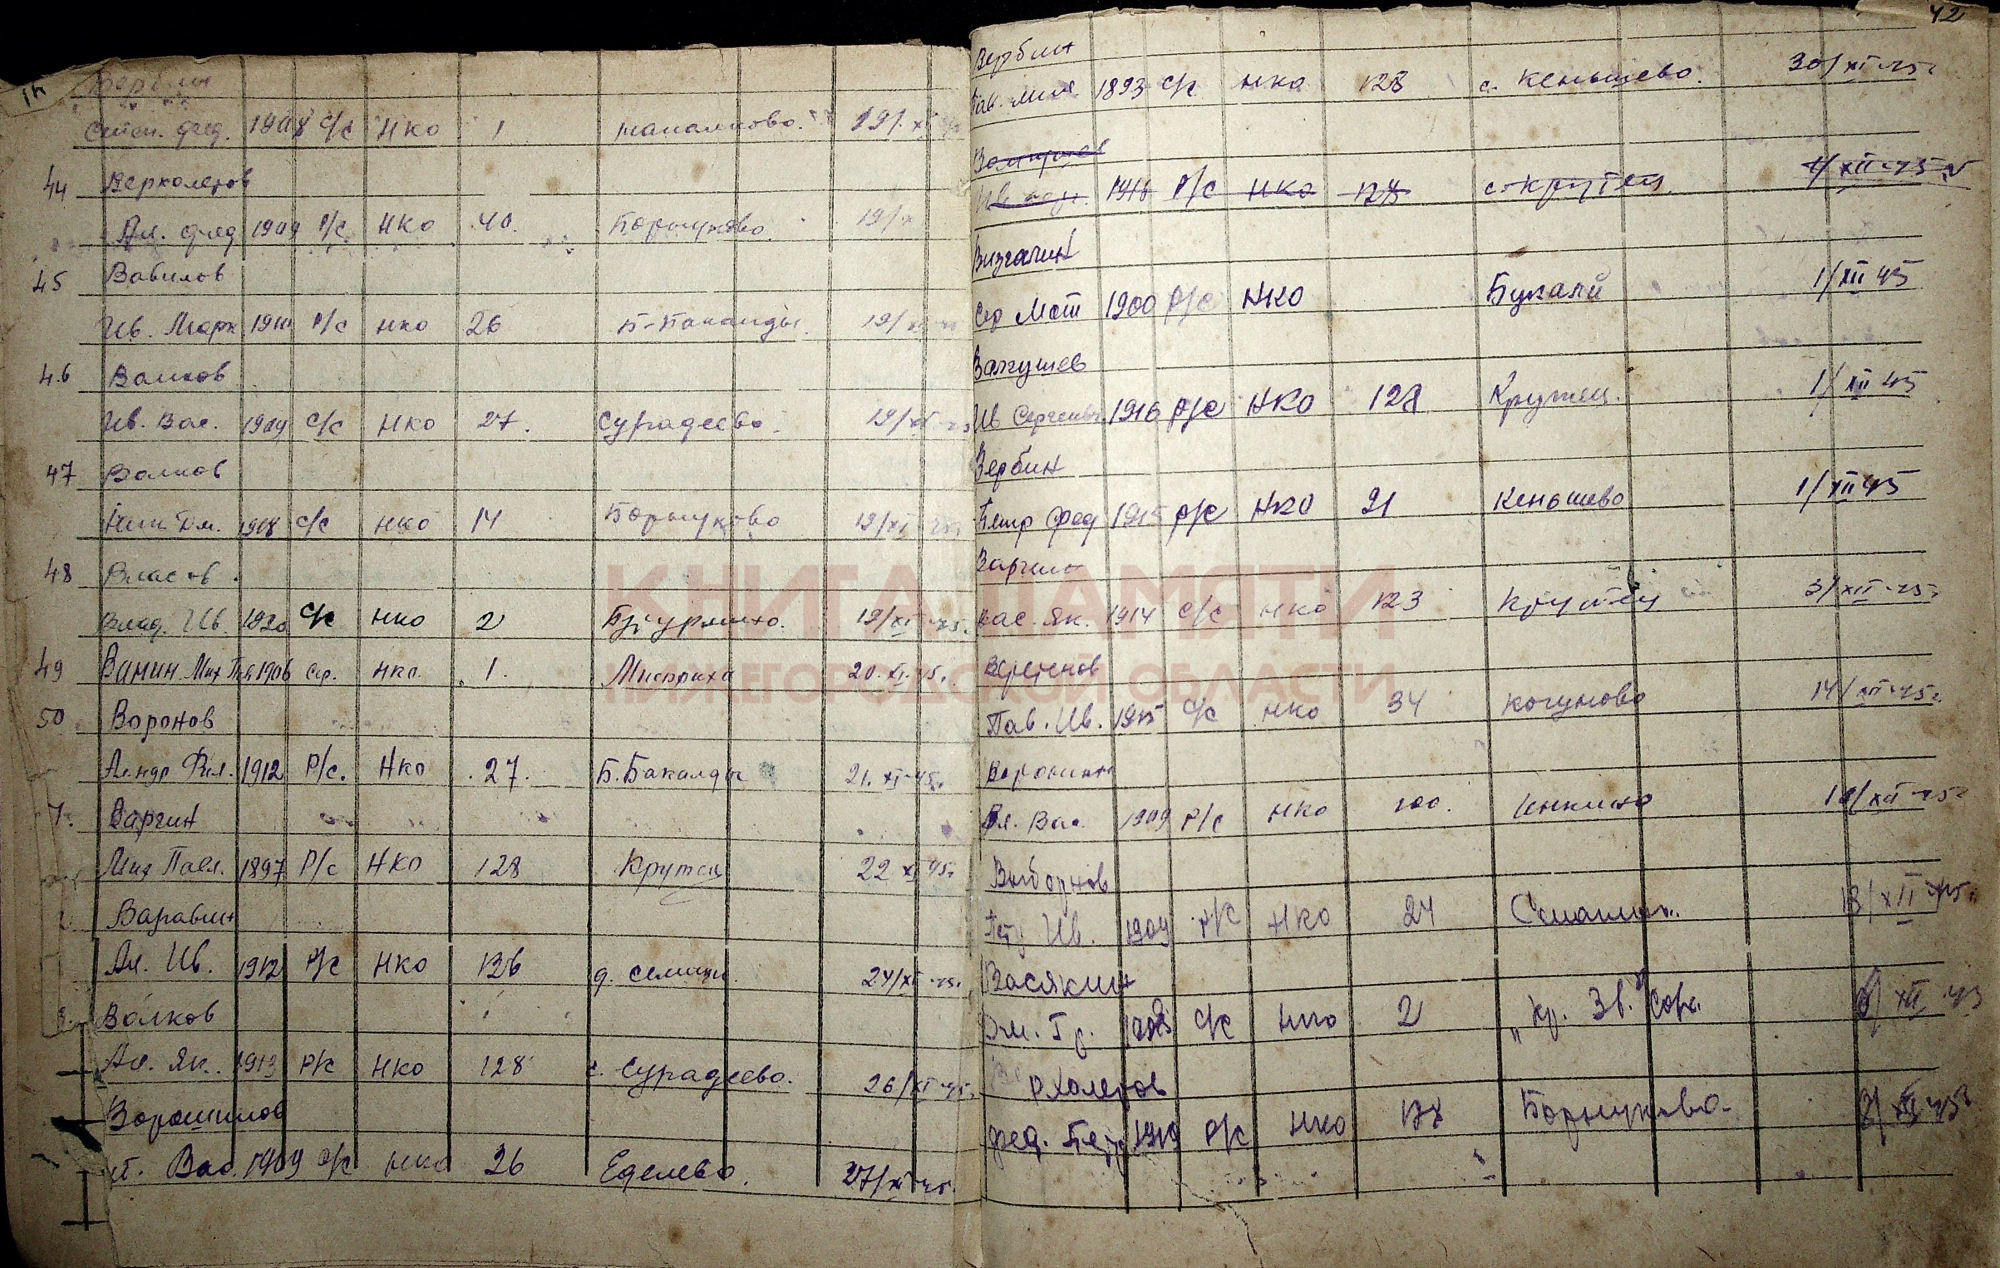 Вербин
Степ. фед. 1908 с/с НКО 1 19/XI
44 Верхолетов
Ал. фед 1909 р/с НКО 40 Борнуково 19/X
45 Вавилов
Ив. Марк 1910 р/с НКО 26 Б-Бакалды 19/XI
46 Волков
Ив. Вас. 1909 с/с НКО 27. Сурадеево. 19/XI
47 Волков
Дм. 1908 с/с НКО 14 Борнуково 19/XI 45
48 Власов
Влад. Ив. 1920 с/с НКО 2 19/XI-45.
49 Ванин Мих 1906 НКО 1. 20.XI.45г.
50 Воронов
Алндр Фил. 1912 р/с. НКО 27. Б.Бакалды 21.XI-45г.
Варгин
Мих Павл. 1897 р/с НКО 128 Крутец 22 XI 45г
Варавин
Ал. Ив. 1912 р/с НКО 126 д. 24/XI-45г.
Волков
Ал. Як. 1913 р/с НКО 128 с. Сурадеево. 26/XI-45г.
Ворошилов
Вас. 1909 с/с НКО 26 Еделево. 27/XI-45г.
42
Вербин
Пав. Мих 1893 с/с НКО 128 с. Кеньшево. 30/XI-45г
Ив 1916 р/с НКО 128 с. Крутец 1/XII-45г
Визгалин
Сер Мат 1900 р/с НКО Букалей 1/XII 45
Важушев
Ив Сергеевич 1916 р/с НКО 128 Крутец. 1/XII 45
Вербин
Петр Фед 1915 р/с НКО 21 Кеньшево 1/XII 45
Варгин
Вас. Як. 1914 с/с НКО 123 Крутец 3/XII-45г
Веретенов
Пав. Ив. 1915 с/с НКО 34 14/XII-45г.
Воронин
Вл. Вас. 1909 р/с НКО 100. Инкино XII-45г
Выборнов
Ив. 1909 р/с НКО 24 13/XII 45г.
Васякин
Дм. Гр. с/с НКО 2 „Кр. Зв." Сорк. XII 45
Верхолетов
Фед. Петр. 1910 р/с НКО 128 Борнуково. XII 45г
КНИГА ПАМЯТИ
НИЖЕГОРОДСКОЙ ОБЛАСТИ